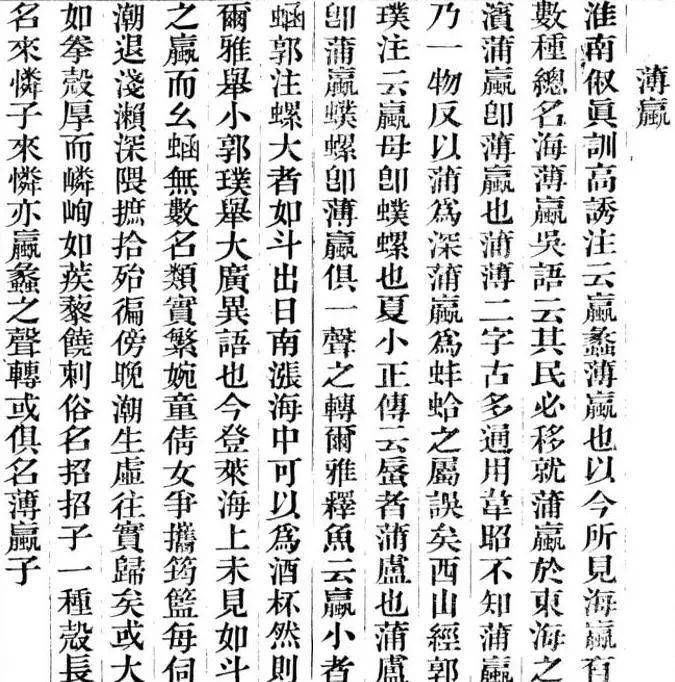 薄蠃
淮南俶眞訓高誘注云蠃蠡薄蠃也以今所見海蠃有
數種總名海薄蠃吳語云其民必移就蒲蠃於東海之
濱蒲蠃卽薄蠃也蒲薄二字古多通用韋昭不知蒲蠃
乃一物反以蒲爲深蒲蠃爲蚌蛤之屬誤矣西山經郭
璞注云蠃母卽蟔螺也夏小正傳云蜃者蒲盧也蒲盧
卽蒲蠃蟔螺卽薄蠃俱一聲之轉爾雅釋魚云蠃小者
蜬郭注螺大者如斗出日南漲海中可以爲酒杯然則
爾雅舉小郭璞舉大廣異語也今登萊海上未見如斗
之蠃而幺蜬無數名類實繁婉童倩女爭攜筠籃每伺
潮退淺瀨深隈摭拾殆徧傍晚潮生虛往實歸矣或大
如拳殼厚而嶙峋如蒺藜饒刺俗名招招子一種殼長
名來憐子來憐亦蠃蠡之聲轉或俱名薄蠃子